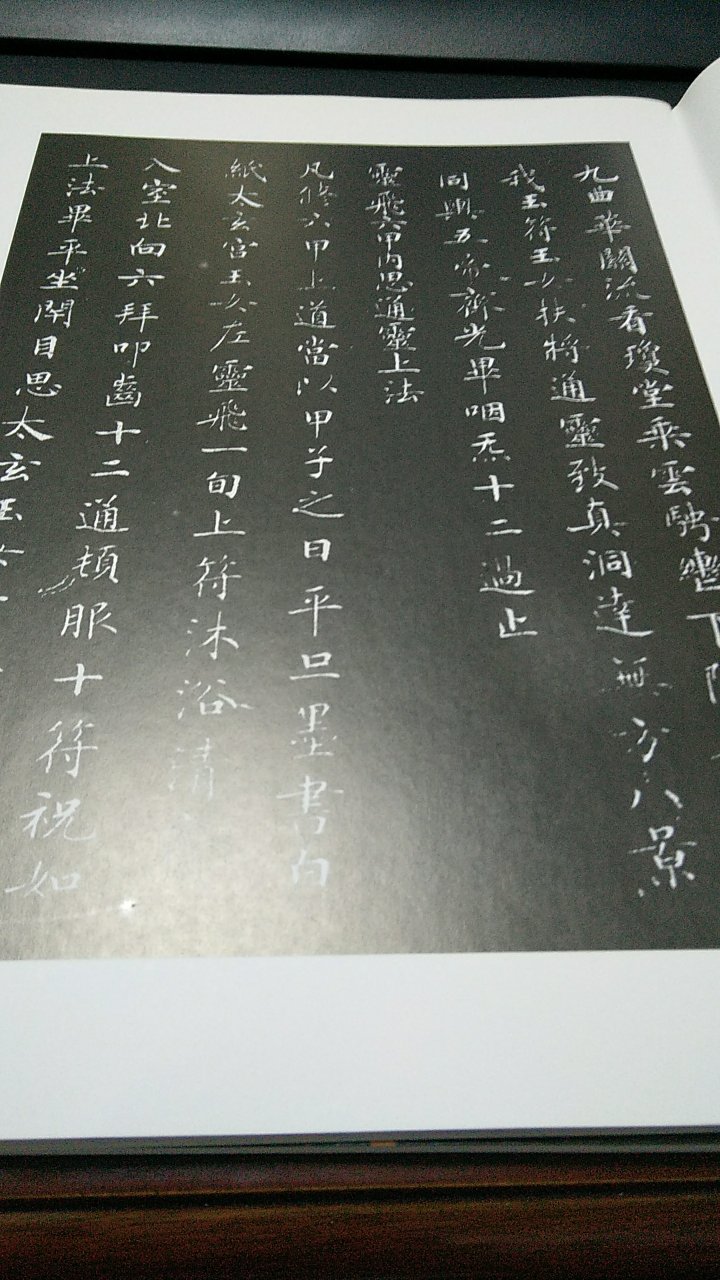 九曲華關流看瓊堂乘雲騁轡下
我玉符玉女扶將通靈致真洞達無方八景
同興五帝齊光畢咽炁十二過止
靈飛六甲內思通靈上法
凡修六甲上道當以甲子之日平旦墨書白
紙太玄宮玉女左靈飛一旬上符沐浴清
入室北向六拜叩齒十二通頓服十符祝如
上法畢平坐閉目思太玄玉女